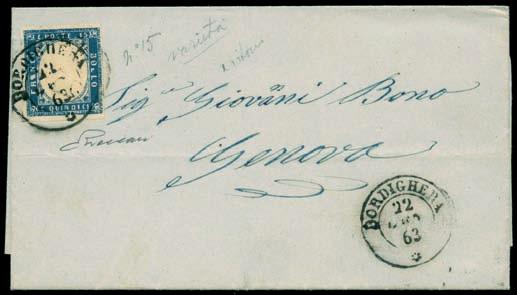 C. POSTE 15
FRANCO
BOLLO
C. QUINDICI
BORDIGHERA
22
63
n° 15
varietà
Sig. Giovani Bono
Genova
BORDIGHERA
22
63